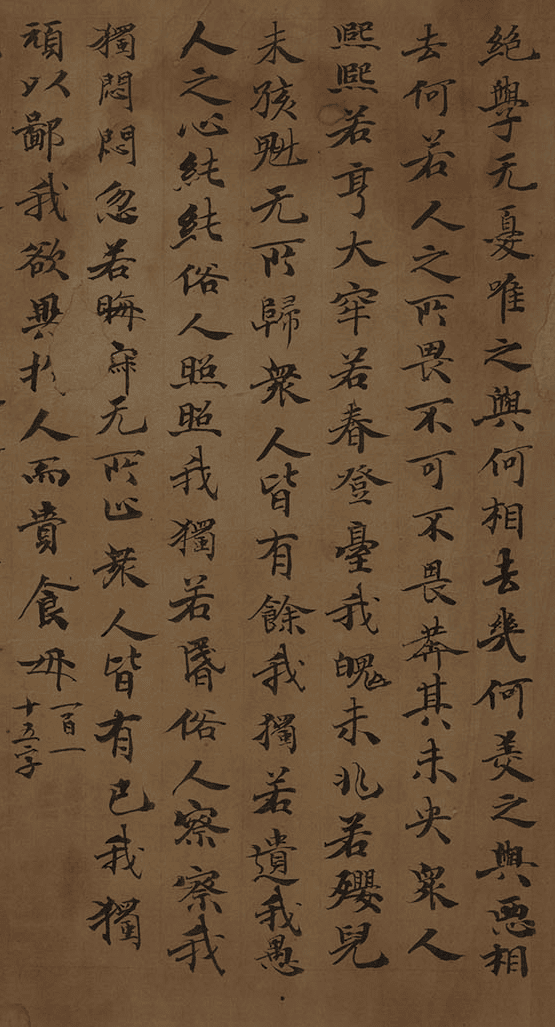 絕學无憂唯之與何相去幾何美之與惡相
去何若人之所畏不可不畏莽其未央眾人
熙熙若亨大窂若春登臺我魄未兆若孾兒
未孩魁无所歸眾人皆有餘我獨若遺我愚
人之心純純俗人照照我獨若昬俗人察察我
獨悶悶忽若晦寂无所止眾人皆有已我獨
頑以鄙我欲異於人而貴食母
一百一
十五字